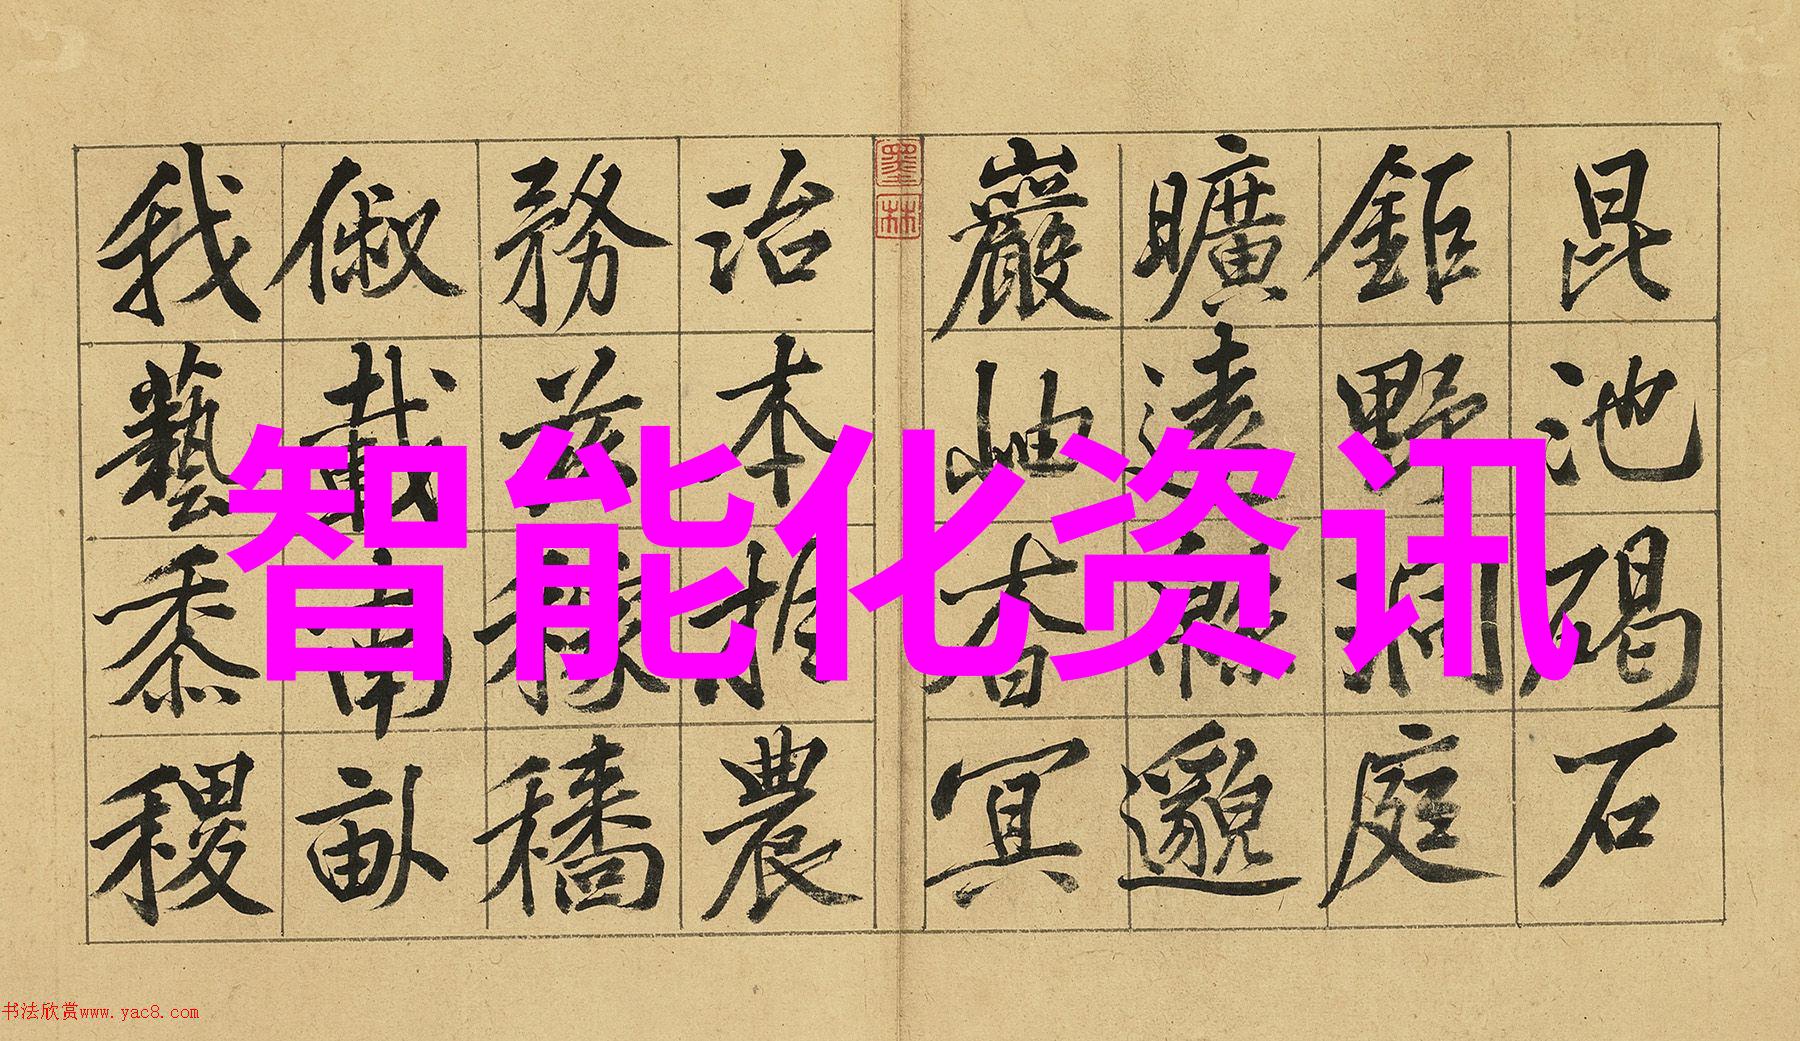 昆池碣石
鉅野洞庭
曠遠緜邈
巖岫杳冥
治本於農
務茲稼穡
俶載南畝
我藝黍稷
墨林
智能化资讯
书法欣赏www.yac8.com